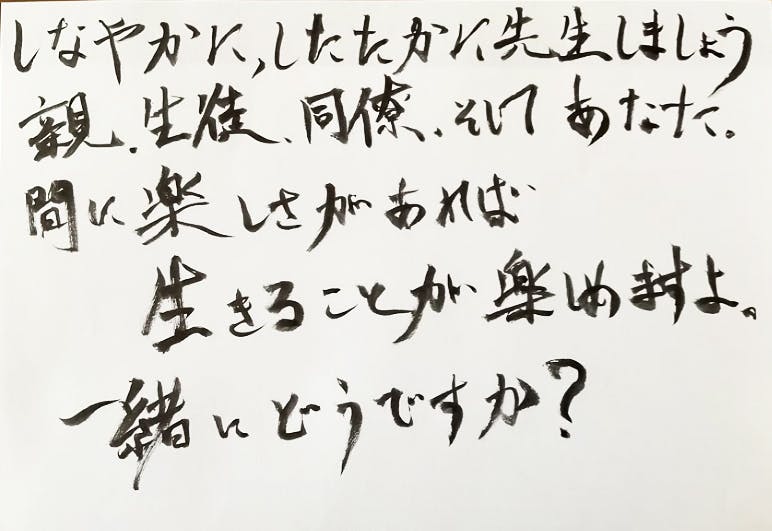 しなやかに,したたかに先生しましょう
親、生徒、同僚、そして あなた。
間に楽しさがあれば
生きることが楽しめますよ。
一緒にどうですか?